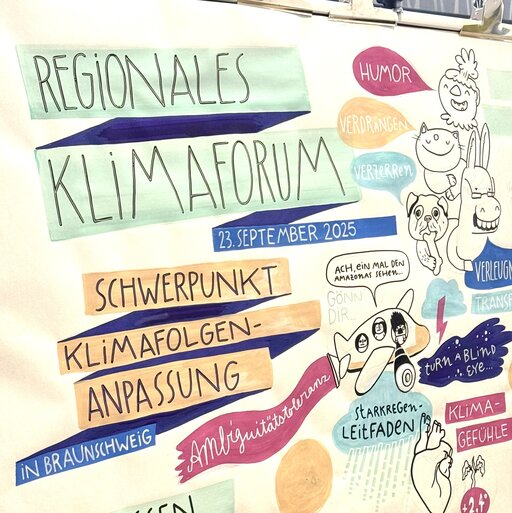 REGIONALES
KLIMAFORUM
23. SEPTEMBER 2025
SCHWERPUNKT
KLIMAFOLGEN-
ANPASSUNG
IN BRAUNSCHWEIG
HUMOR
VERDRÄNGEN
VERZERREN
ACH, EIN MAL DEN
AMAZONAS SEHEN...
GÖNN
DIR...
TURN A BLIND
EYE...
Ambiguitätstoleranz
STARKREGEN-
LEITFADEN
KLIMA-
GEFÜHLE